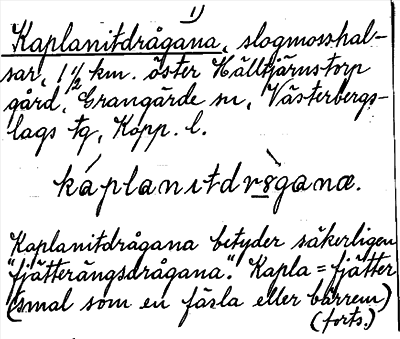 1)
Kaplanitdrågana, slogmosshal-
sar, 1 1/2 km. öster Hälltjärnstorp
gård, Grangärde sn, Västerbergs-
lags tg, Kopp. l.
káplanıtdr8̱̀ganæ.
Kaplanitdrågana betyder säkerligen
"fjätterängsdrågana." Kapla = fjätter
(smal som en fäsla eller bärrem)
(forts.)